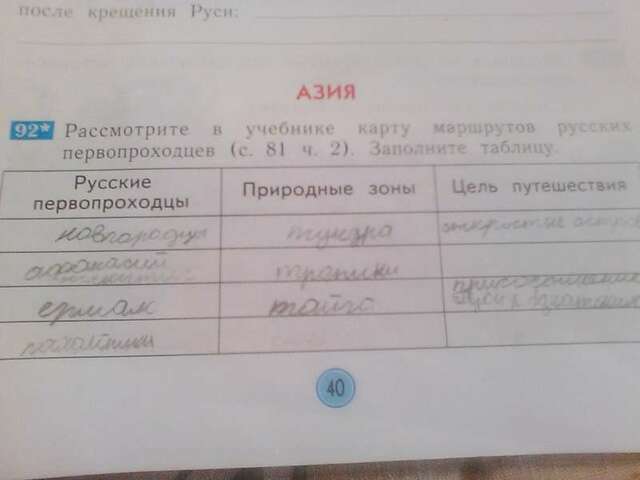 после крещения Руси:
АЗИЯ
92* Рассмотрите в учебнике карту маршрутов русских
первопроходцев (с. 81 ч. 2). Заполните таблицу.
Русские первопроходцы
Природные зоны
Цель путешествия
новгородцы
тундра
афанасий
тропики
ермак
тайга
40